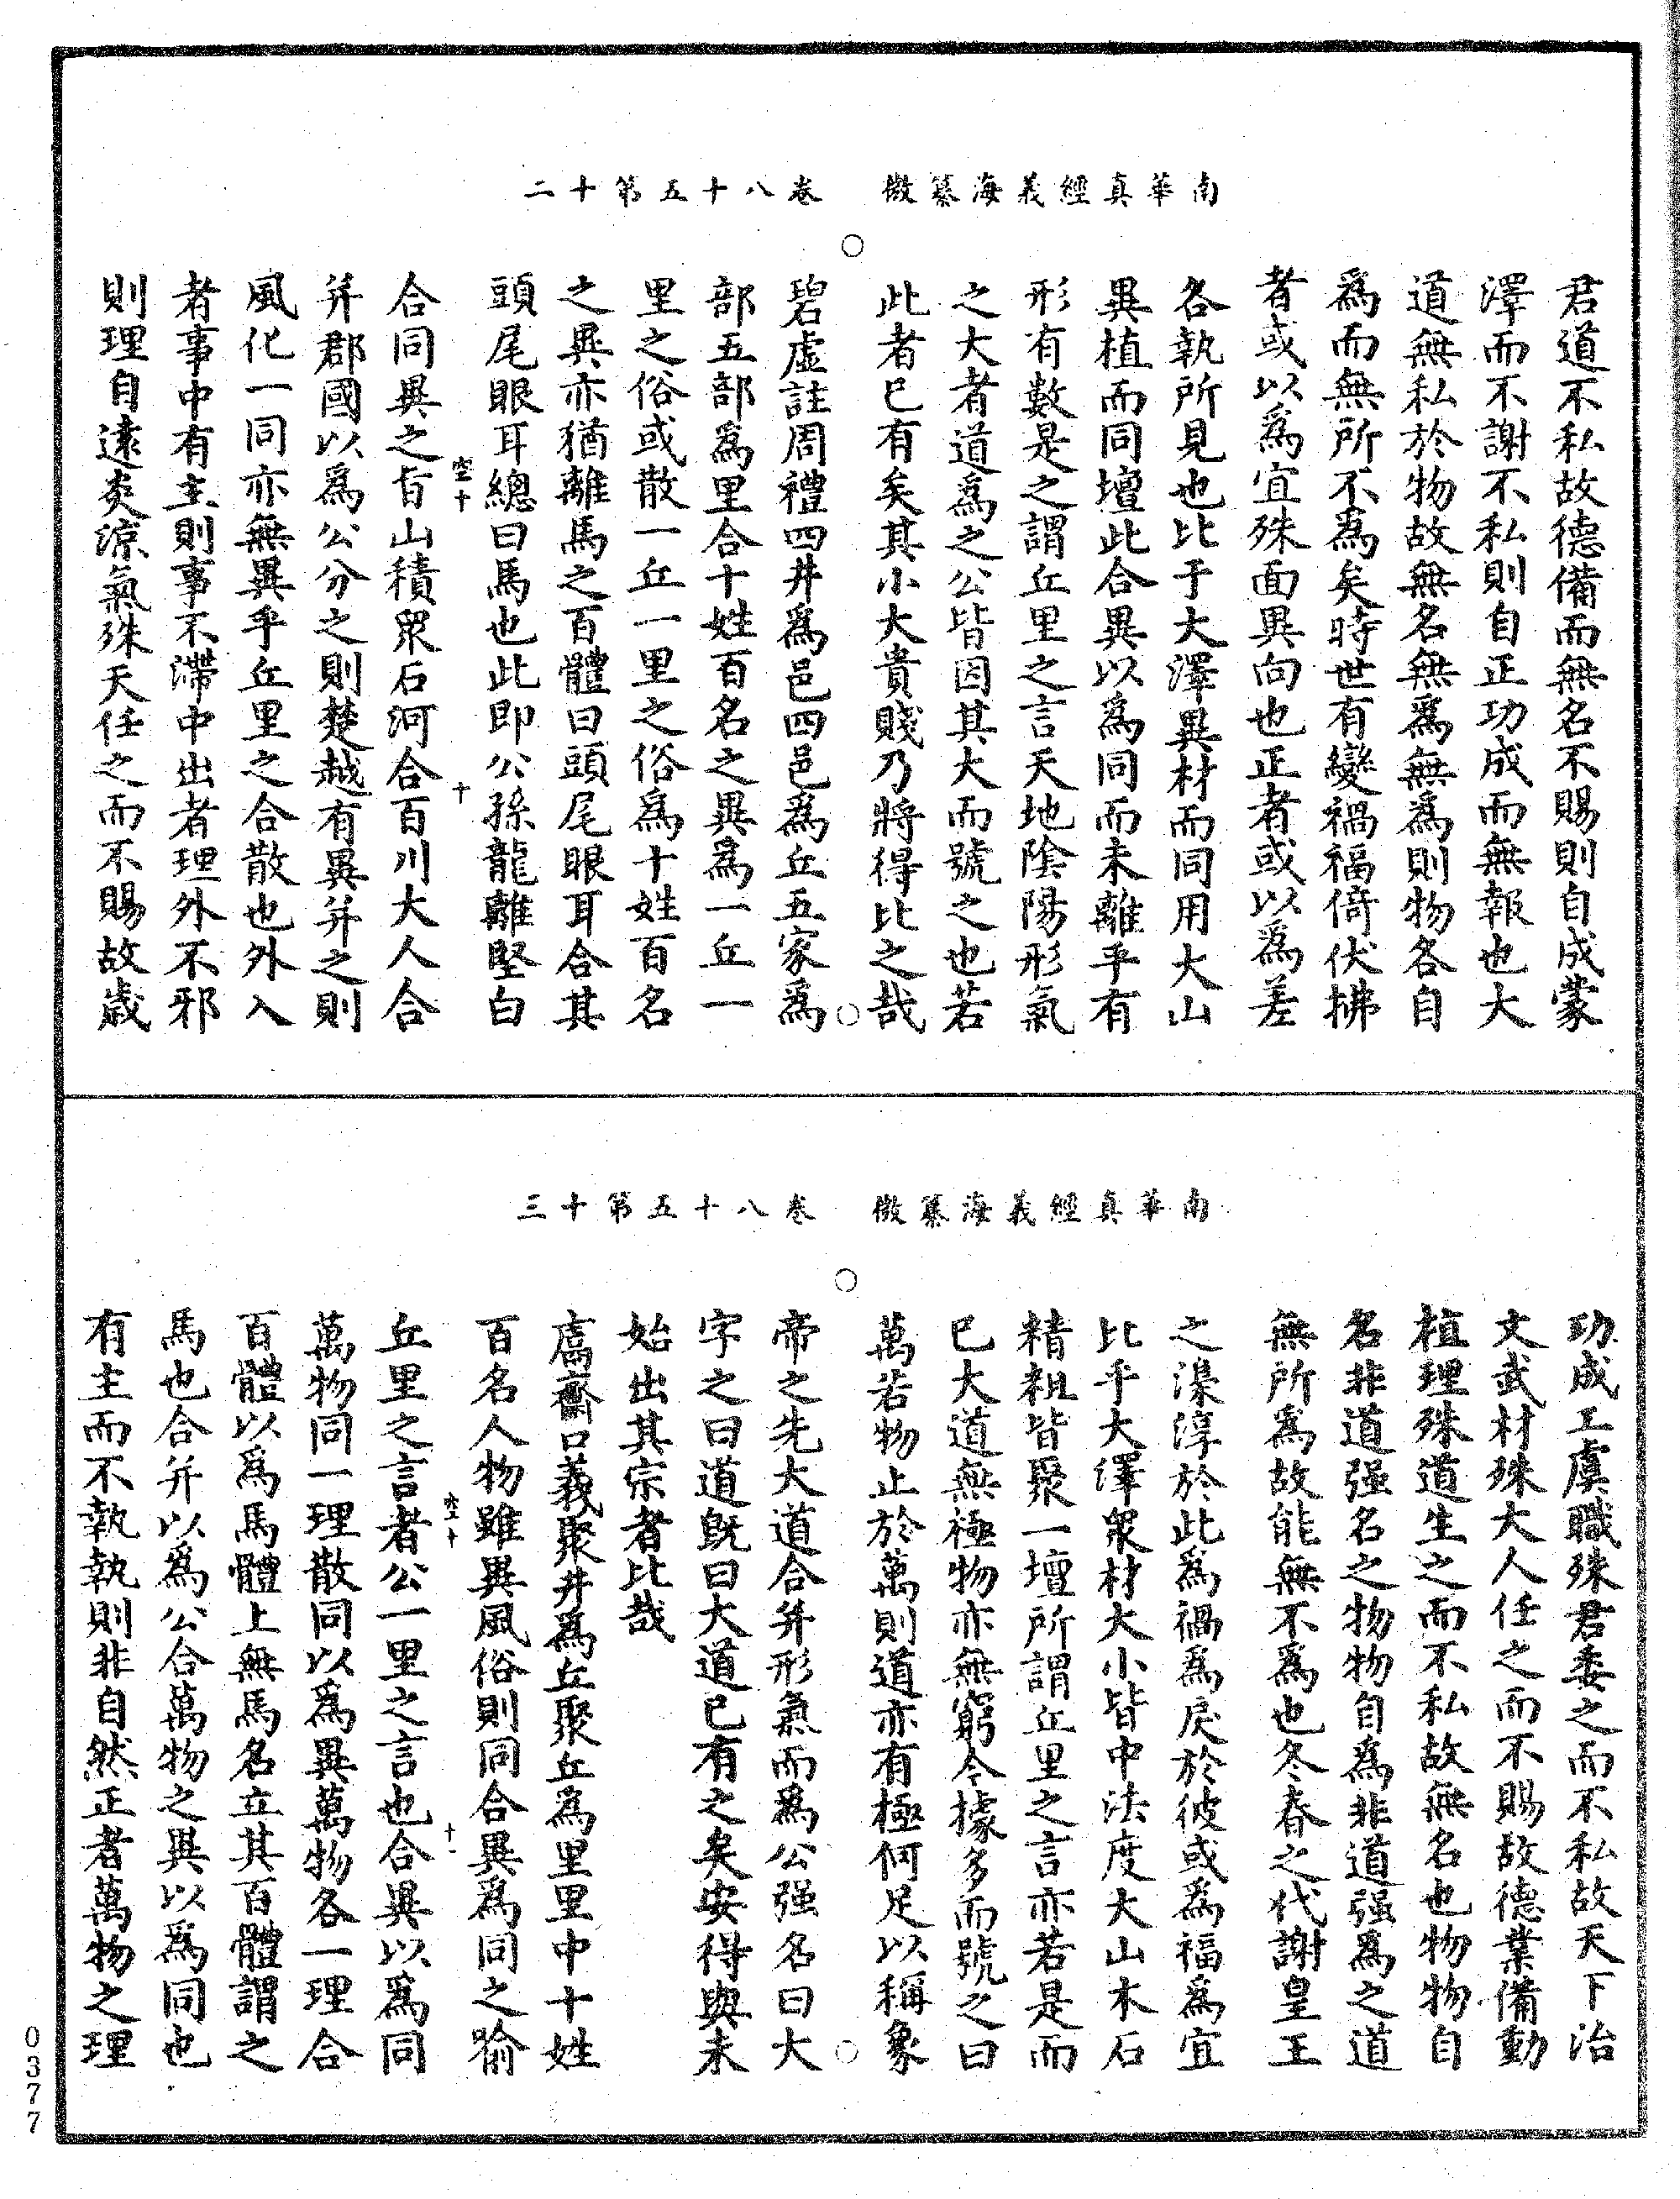 南華真經義海纂微　卷八十五第十二
君道不私故德備而無名不賜則自成蒙
澤而不謝不私則自正功成而無報也大
道無私於物故無名無爲無為則物各自
爲而無所不爲矣時世有變禍福倚伏拂
者或以爲宜殊面異向也正者或以爲差
各執所見也比于大澤異材而同用大山
異植而同壇此合異以爲同而未離乎有
形有數是之謂丘里之言天地陰陽形氣
之大者道爲之公皆因其大而號之也若
此者已有矣其小大貴賤乃將得比之哉
碧虛註周禮四井爲邑四邑爲丘五家爲
部五部爲里合十姓百名之異爲一丘一
里之俗或散一丘一里之俗爲十姓百名
之異亦猶離馬之百體曰頭尾眼耳合其
頭尾眼耳總曰馬也此即公孫龍離堅白
空十　十
合同異之旨山積眾石河合百川大人合
并郡國以爲公分之則楚越有異并之則
風化一同亦無異乎丘里之合散也外入
者事中有主則事不滯中出者理外不邪
則理自遠炎涼氣殊天任之而不賜故歲
南華真經義海纂微　卷八十五第十三
功成工虞職殊君委之而不私故天下治
文武材殊大人任之而不賜故德業備動
植理殊道生之而不私故無名也物物自
名非道强名之物物自爲非道强爲之道
無所爲故能無不爲也冬春之代謝皇王
之漅淳於此爲禍爲戾於彼或爲福爲宜
比乎大澤眾材大小皆中法度大山木石
精粗皆聚一壇所謂丘里之言亦若是而
已大道無極物亦無窮今據多而號之曰
萬若物止於萬則道亦有極何足以稱象
帝之先大道合并形氣而爲公强名曰大
字之曰道既曰大道已有之矣安得與未
始出其宗者比哉
鬳齋口義聚井爲丘聚丘為里里中十姓
百名人物雖異風俗則同合異爲同之喻
空十　十一
丘里之言者公一里之言也合異以爲同
萬物同一理散同以爲異萬物各一理合
百體以爲馬馬體上無馬名立其百體謂之
馬也合并以爲公合萬物之異以爲同也
有主而不執執則非自然正者萬物之理
0377